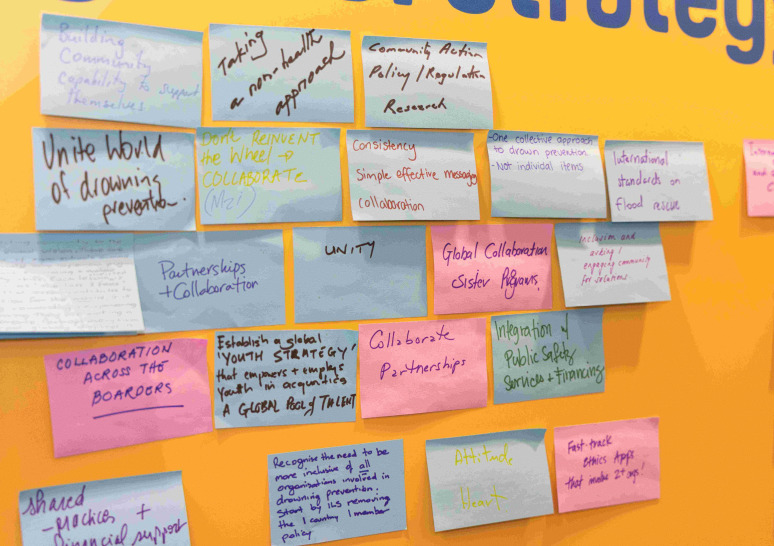 strategy
Building
Community
capability to support
themselves
Taking
a non-health
approach
Community Action
Policy / Regulation
Research
Unite World
of drowning
prevention.
Don't REINVENT
the Wheel →
COLLABORATE
Consistency
Simple effective messaging
collaboration
-One collective approach
to drown prevention.
-Not individal items
International
standards on
flood rescue
Partnerships
+ Collaboration
UNITY
Global Collaboration
Sister Programs.
Inclusion and
engaging community
for solutions
COLLABORATION
ACROSS THE
BOARDERS
Establish a global
'YOUTH STRATEGY'
that empowers + employs
Youth in
A GLOBAL POOL of TALENT
Collaborate
Partnerships
Integration of
Public Safety
Services + Financing
shared
- practices +
Financial support
Recognise the need to be
more inclusive of all
organisations involved in
drowning prevention.
Start by ILS removing
the 1 country 1 member
policy
Attitude
Heart
Fast track
Ethics Apps
that involve 2+ orgs!